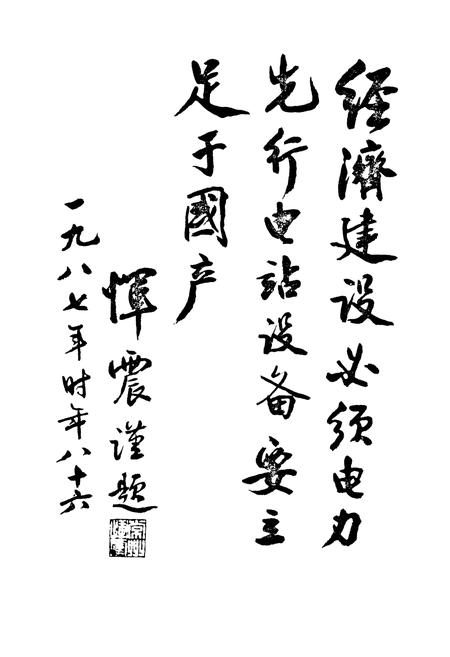 经濟建设必须电力
先行电站设备要立
足于國产
恽震谨题
一九八七年时年八十六
常州
惲震